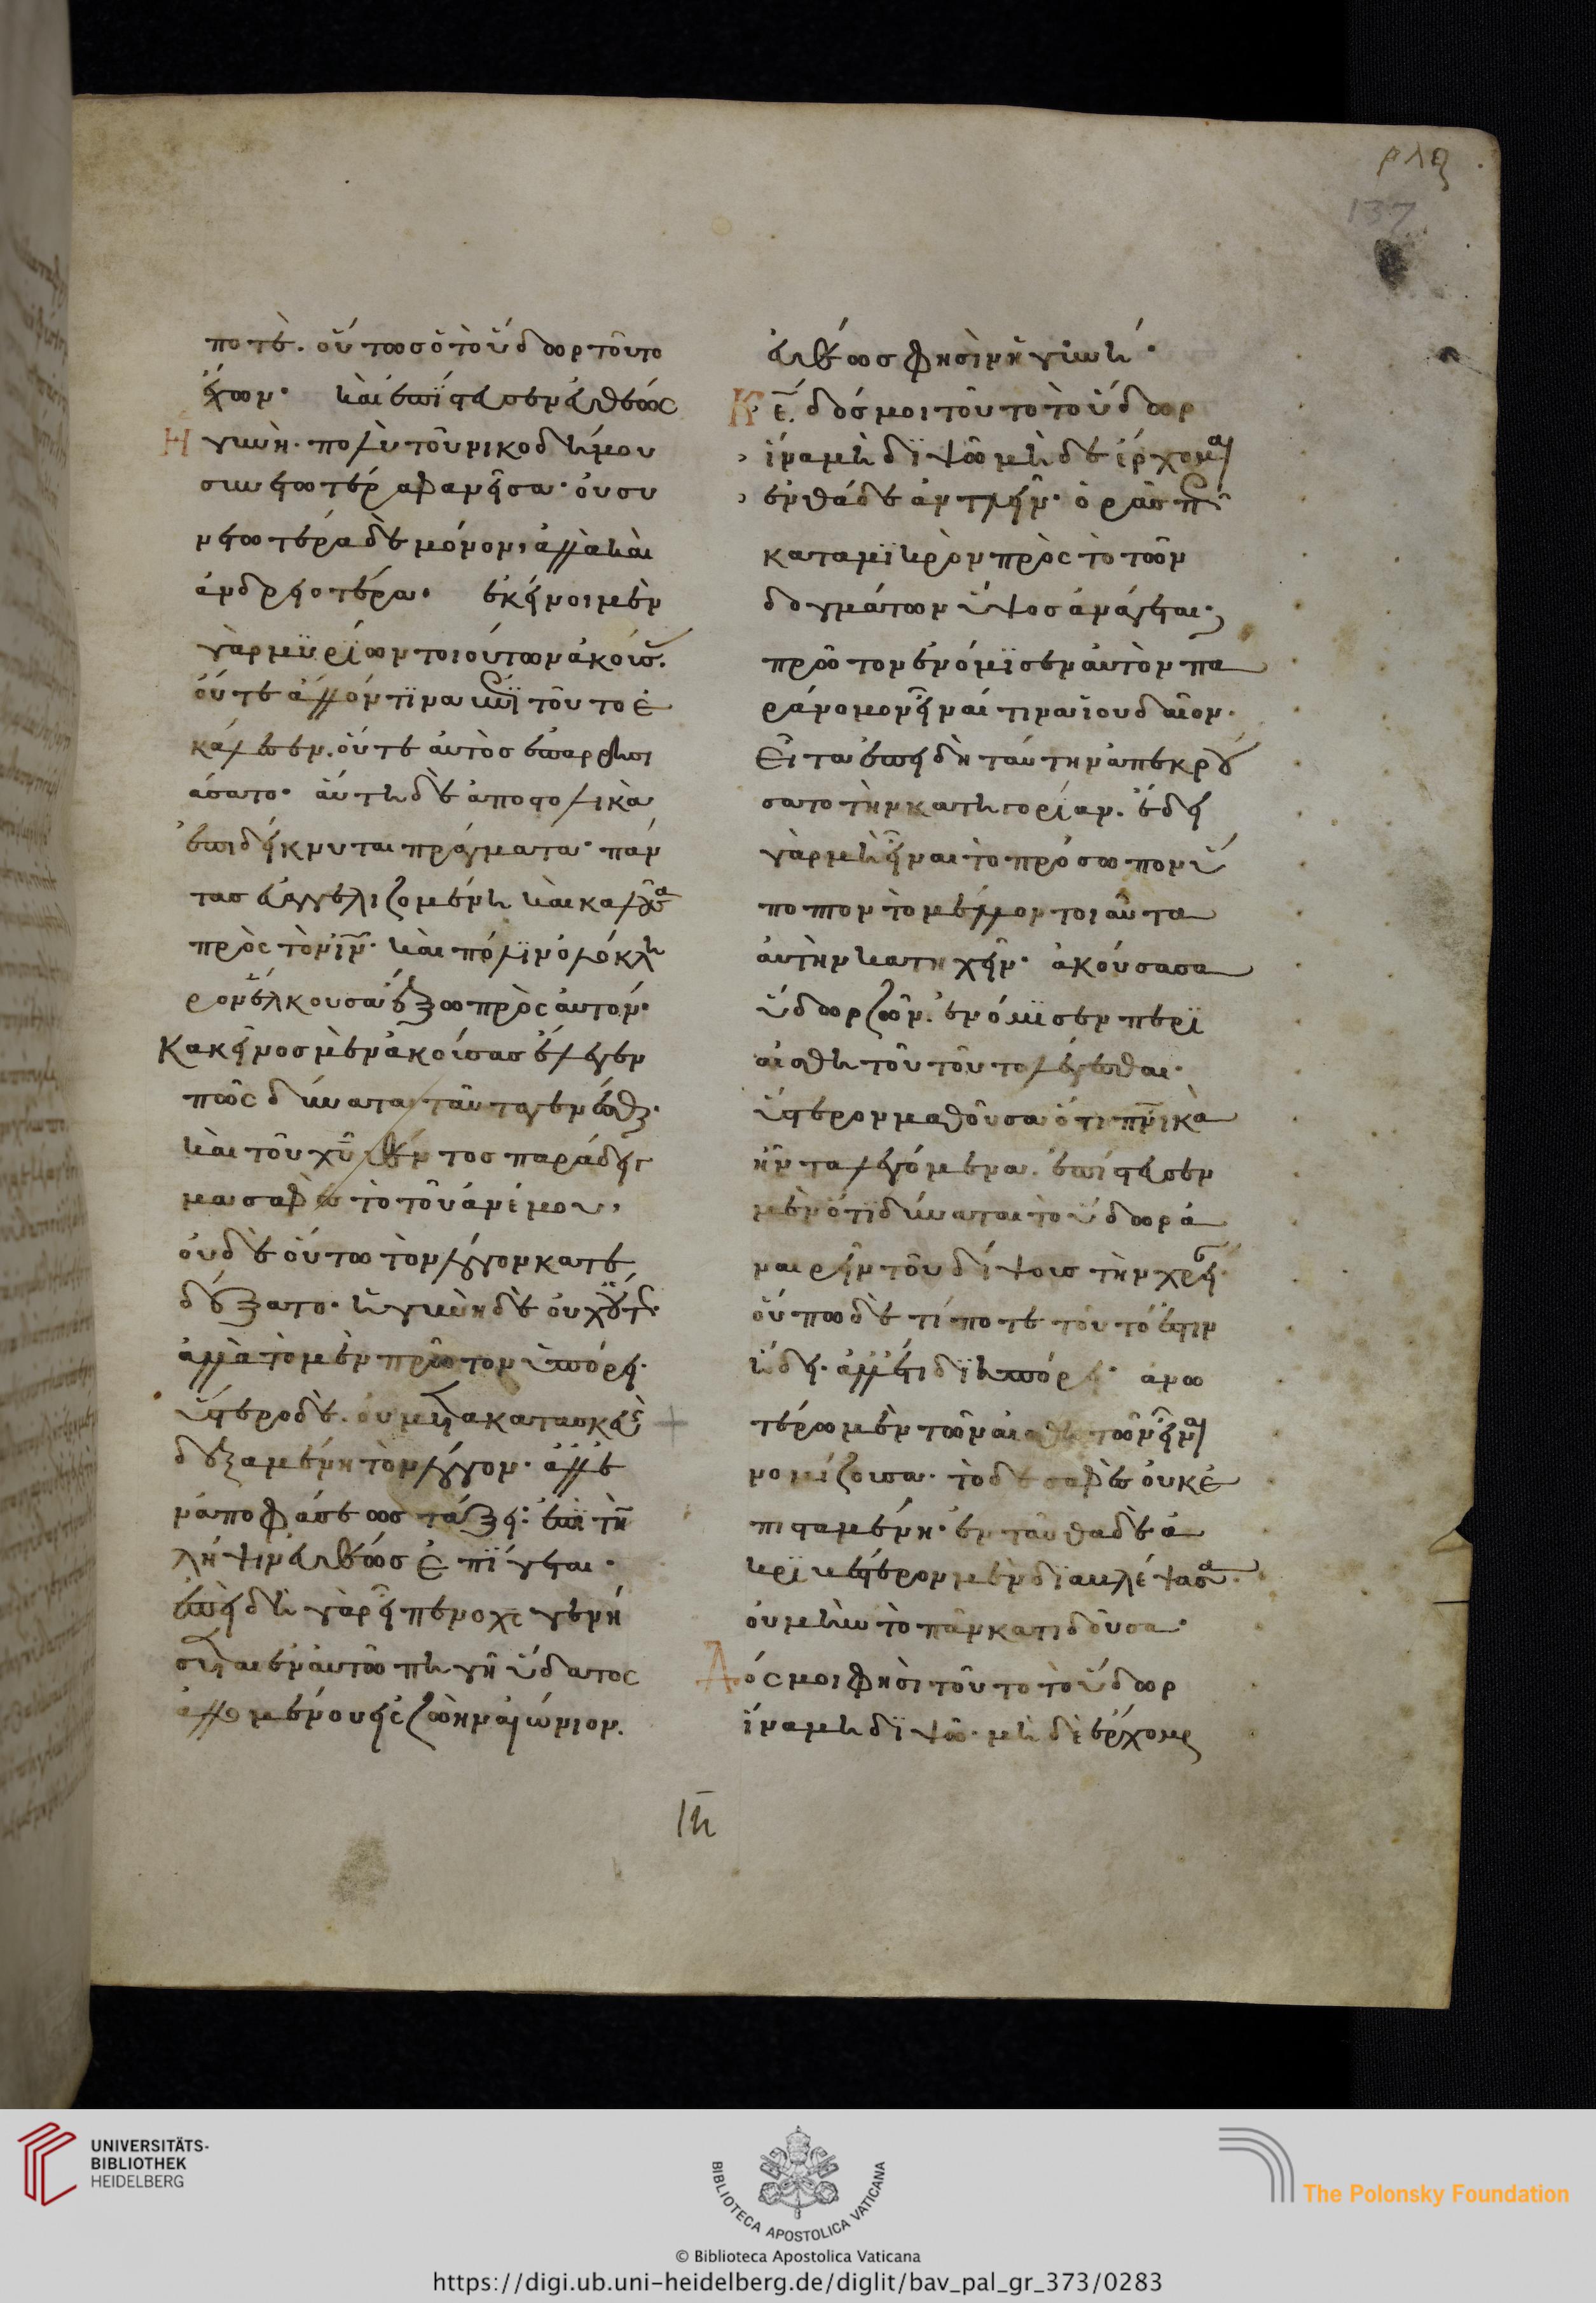 ποτέ. οὕτωσ ὁ τὸ ὕδωρ τοῦτο
ἔχων. καὶ ἐπίστευσεν εὐθέως
Ἡ γυνή. πολὺ τοῦ νικοδήμου
συνετωτέρα φανεῖσα. οὐ συ
νετωτέρα δὲ μόνον. ἀλλὰ καὶ
ἀνδρειοτέρα. ἐκεῖνοσ μὲν
γὰρ μυρΐων τοιούτων ἀκούσ.
οὔτε ἄλλον τϊνα ἐπϊ τοῦτο ἐ
κάλεσεν. οὔτε αὐτὸσ ἐπαρρησι
άσατο. αὕτη δὲ ἀποστολικὰ
ἐπιδείκνυται πράγματα. πάν
τασ εὐαγγελιζομένη καὶ καλοῦσα
πρὸς τὸν ιν. καὶ πόλϊν ὁλόκλη
ρον ἕλκουσα ἔξω πρὸς αὐτόν.
Κακεῖνοσ μὲν ἀκούσασ ἔλεγεν
πῶς δύναται ταῦτα γενέσθαι.
καὶ τοῦ χυ θέντοσ παράδειγ
μα σαφὲσ τὸ τοῦ ἀνέμου,
οὐδὲ οὕτω τὸν λόγον κατε
δέξατο. ἡ γυνὴ δὲ οὐχ οὕτως.
ἀλλὰ τὸ μὲν πρῶτον ἠπόρει.
ὕστερο δὲ. οὐ μετὰ κατασκευῆς
δεξαμένη τὸν λόγον. ἀλλ ἐ
ν ἀποφάσεωσ τάξει. ἐπϊ τὴν
λῆψιν εὐθέωσ ἐπϊγεται.
ἐπειδὴ γὰρ εἶπεν ὁ χς γενή
σεται ἐν αὐτῶ πηγὴ ὕδατος
ἁλλομένου εἰς ζωὴν αἰώνιον.
ρλζ
137
εὐθέωσ φησὶν ἡ γυνή.
Κε. δόσ μοι τοῦτο τὸ ὕδωρ
ἵνα μὴ δϊψῶ μὴ δὲ ἔρχομαι
ἐνθάδε ἀντλεῖν. ὁρᾶσ πῶς
κατα μϊκρὸν πρὸς τὸ τῶν
δογμάτων ὕψοσ ἀνάγεται;
πρῶτον ἐνόμϊσεν αὐτὸν πα
ράνομον εἶναί τινα ϊουδαῖον.
Εἶτα ἐπειδὴ ταύτην ἀπεκρού
σατο τὴν κατηγορίαν. ἔδει
γὰρ μὴ εἶναι τὸ πρόσωπον ὕ
ποπτον τὸ μέλλον τοιαῦτα
αὐτὴν κατηχεῖν. ἀκούσασα
ὕδωρ ζῶν. ἐνόμϊσεν περϊ
αἰσθητοῦ τοῦτο λέγεσθαι.
ὕστερον μαθοῦσα ὅτι πνικὰ
ἦν τα λεγόμενα. ἐπίστευσεν
μὲν ὅτϊ δύναται τὸ ὕδωρ ἀ
ναιρεῖν τοῦ δίψουσ τὴν χρεί
οὔπω δὲ τί ποτε τοῦτό ἐστιν
ἤδει. ἀλλ ἔτι δϊηπόρει. ἀνω
τέρω μὲν τῶν αἰσθητῶν εἶναι
νομίζουσα. τὸ δὲ σαφὲσ οὐκ ἐ
πισταμένη. ἐνταῦθα δὲ ἀ
κρϊβέστερον μὲν δϊαβλέψασα.
οὐ μὴν τὸ πᾶν κατιδοῦσα.
Δός μοι φησὶ τοῦτο τὸ ὕδωρ
ἵνα μὴ δϊψῶ. μὴ δὲ ἔρχομαι
ιη
UNIVERSITÄTS-
BIBLIOTHEK
HEIDELBERG
BIBLIOTECA APOSTOLICA VATICANA
© Biblioteca Apostolica Vaticana
The Polonsky Foundation
https://digi.ub.uni-heidelberg.de/diglit/bav_pal_gr_373/0283